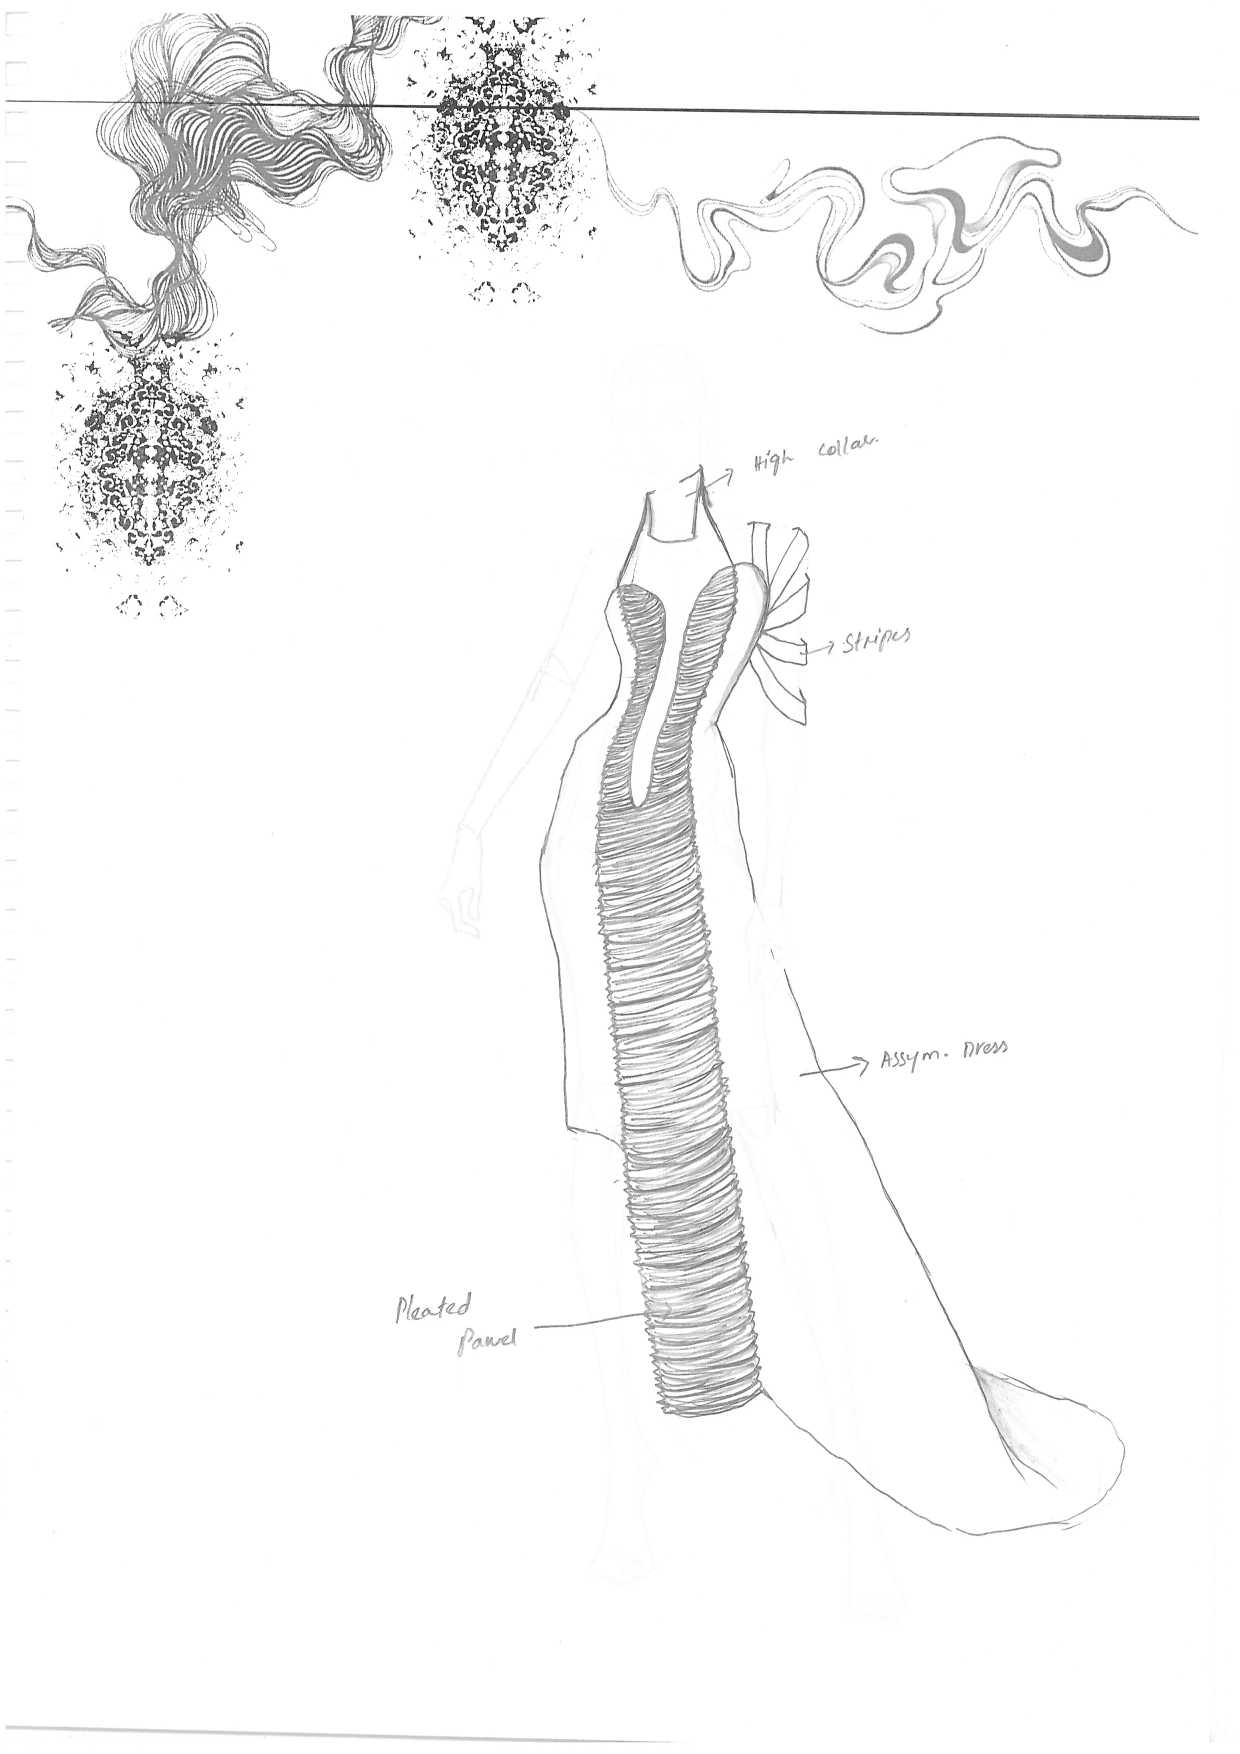 High Collar.
Stripes
Assym. Dress
Pleated
Panel